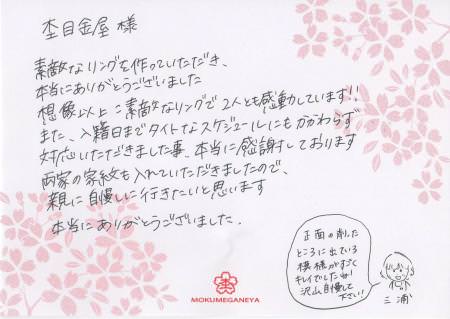 杢目金屋 様
素敵なリングを作っていただき、
本当にありがとうございました
想像以上に素敵なリングで2人とも感動しています!!
また、入籍日までタイトなスケジュールにもかかわらず
対応いただきました事、本当に感謝しております
両家の家紋も入れていただきましたので、
親に自慢しに行きたいと思います
本当にありがとうございました.
正面の削した
ところに出ている
模様がすごく
キレイでしたが
沢山自慢して
下さい!!
三浦
MOKUMEGANEYA